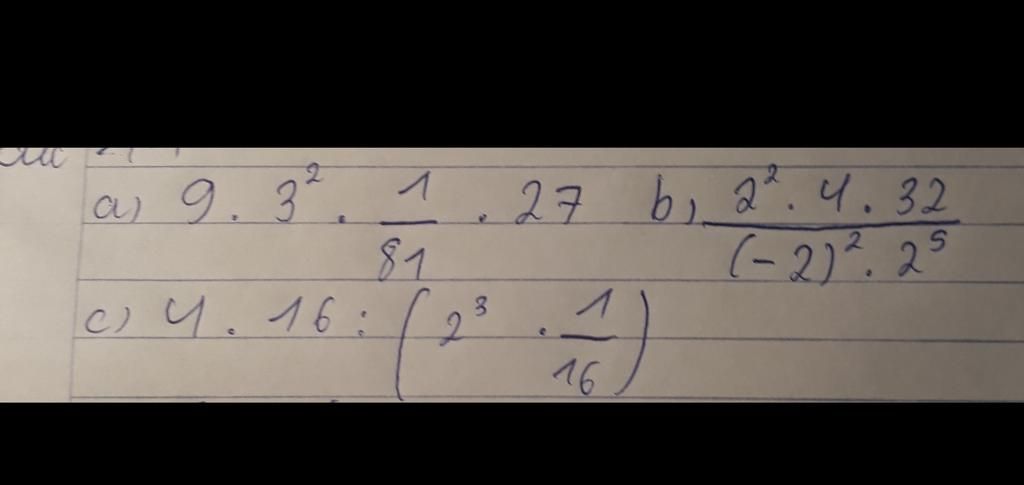 a) 9 . 3² . 1/81 . 27 b) (2² . 4 . 32)/((-2)² . 2⁵)
c) 4 . 16 : (2³ . 1/16)